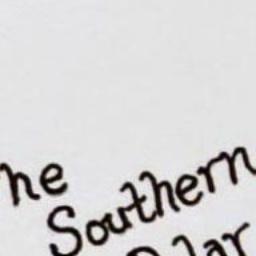 he
Southern
lar